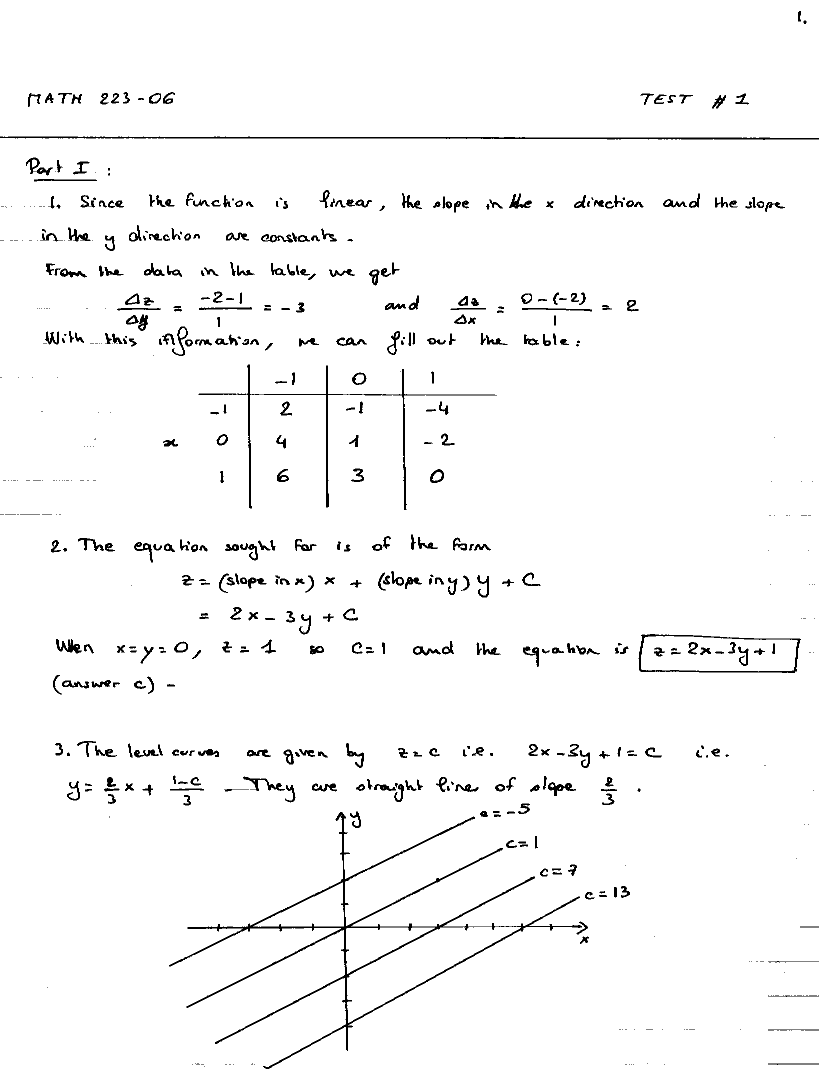 1.
MATH 223-06 TEST # 1
Part I :
1. Since the function is linear, the slope in the x direction and the slope
in the y direction are constants.
From the data in the table, we get
Δz/Δy = (-2-1)/1 = -3 and Δz/Δx = (0-(-2))/1 = 2
With this information, we can fill out the table:
-1 0 1
-1 2 -1 -4
x 0 4 1 -2
1 6 3 0
2. The equation sought for is of the form
z = (slope in x) x + (slope in y) y + C
= 2x - 3y + C
When x=y=0, z=1 so C=1 and the equation is z = 2x-3y+1
(answer c) -
3. The level curves are given by z=c i.e. 2x-3y+1=c i.e.
y = 2/3 x + (1-c)/3 - They are straight lines of slope 2/3 .
y
c=-5
c=1
c=7
c=13
x